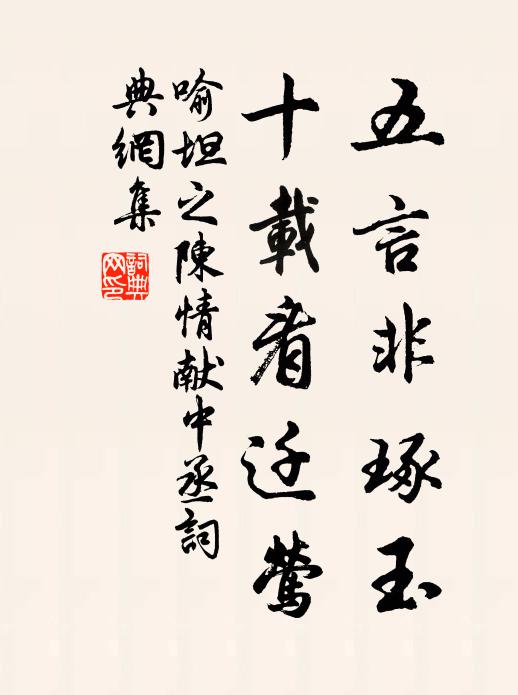 五言非琢玉
十載看迁鶯
喻坦之陳情献中丞詞
典網集
詞典网印